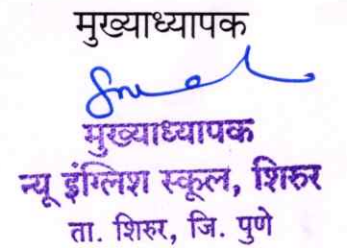 मुख्याध्यापक
मुख्याध्यापक
न्यू इंग्लिश स्कूल, शिरुर
ता. शिरुर, जि. पुणे